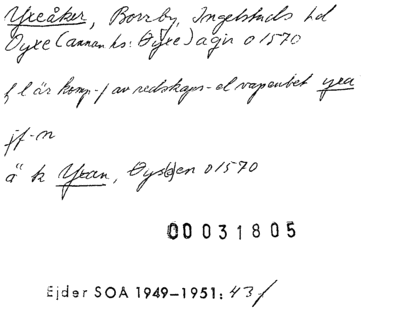 Yxeåker, Borrby, Ingelstads hd
Øyxe (annan hs: Øyxe) agir o 1570
f l är komp-f av redskaps- el vapenbet yxa
jf-n
ä k Yxan, Øysjen o 1570
00031805
Ejder SOA 1949–1951: 43f